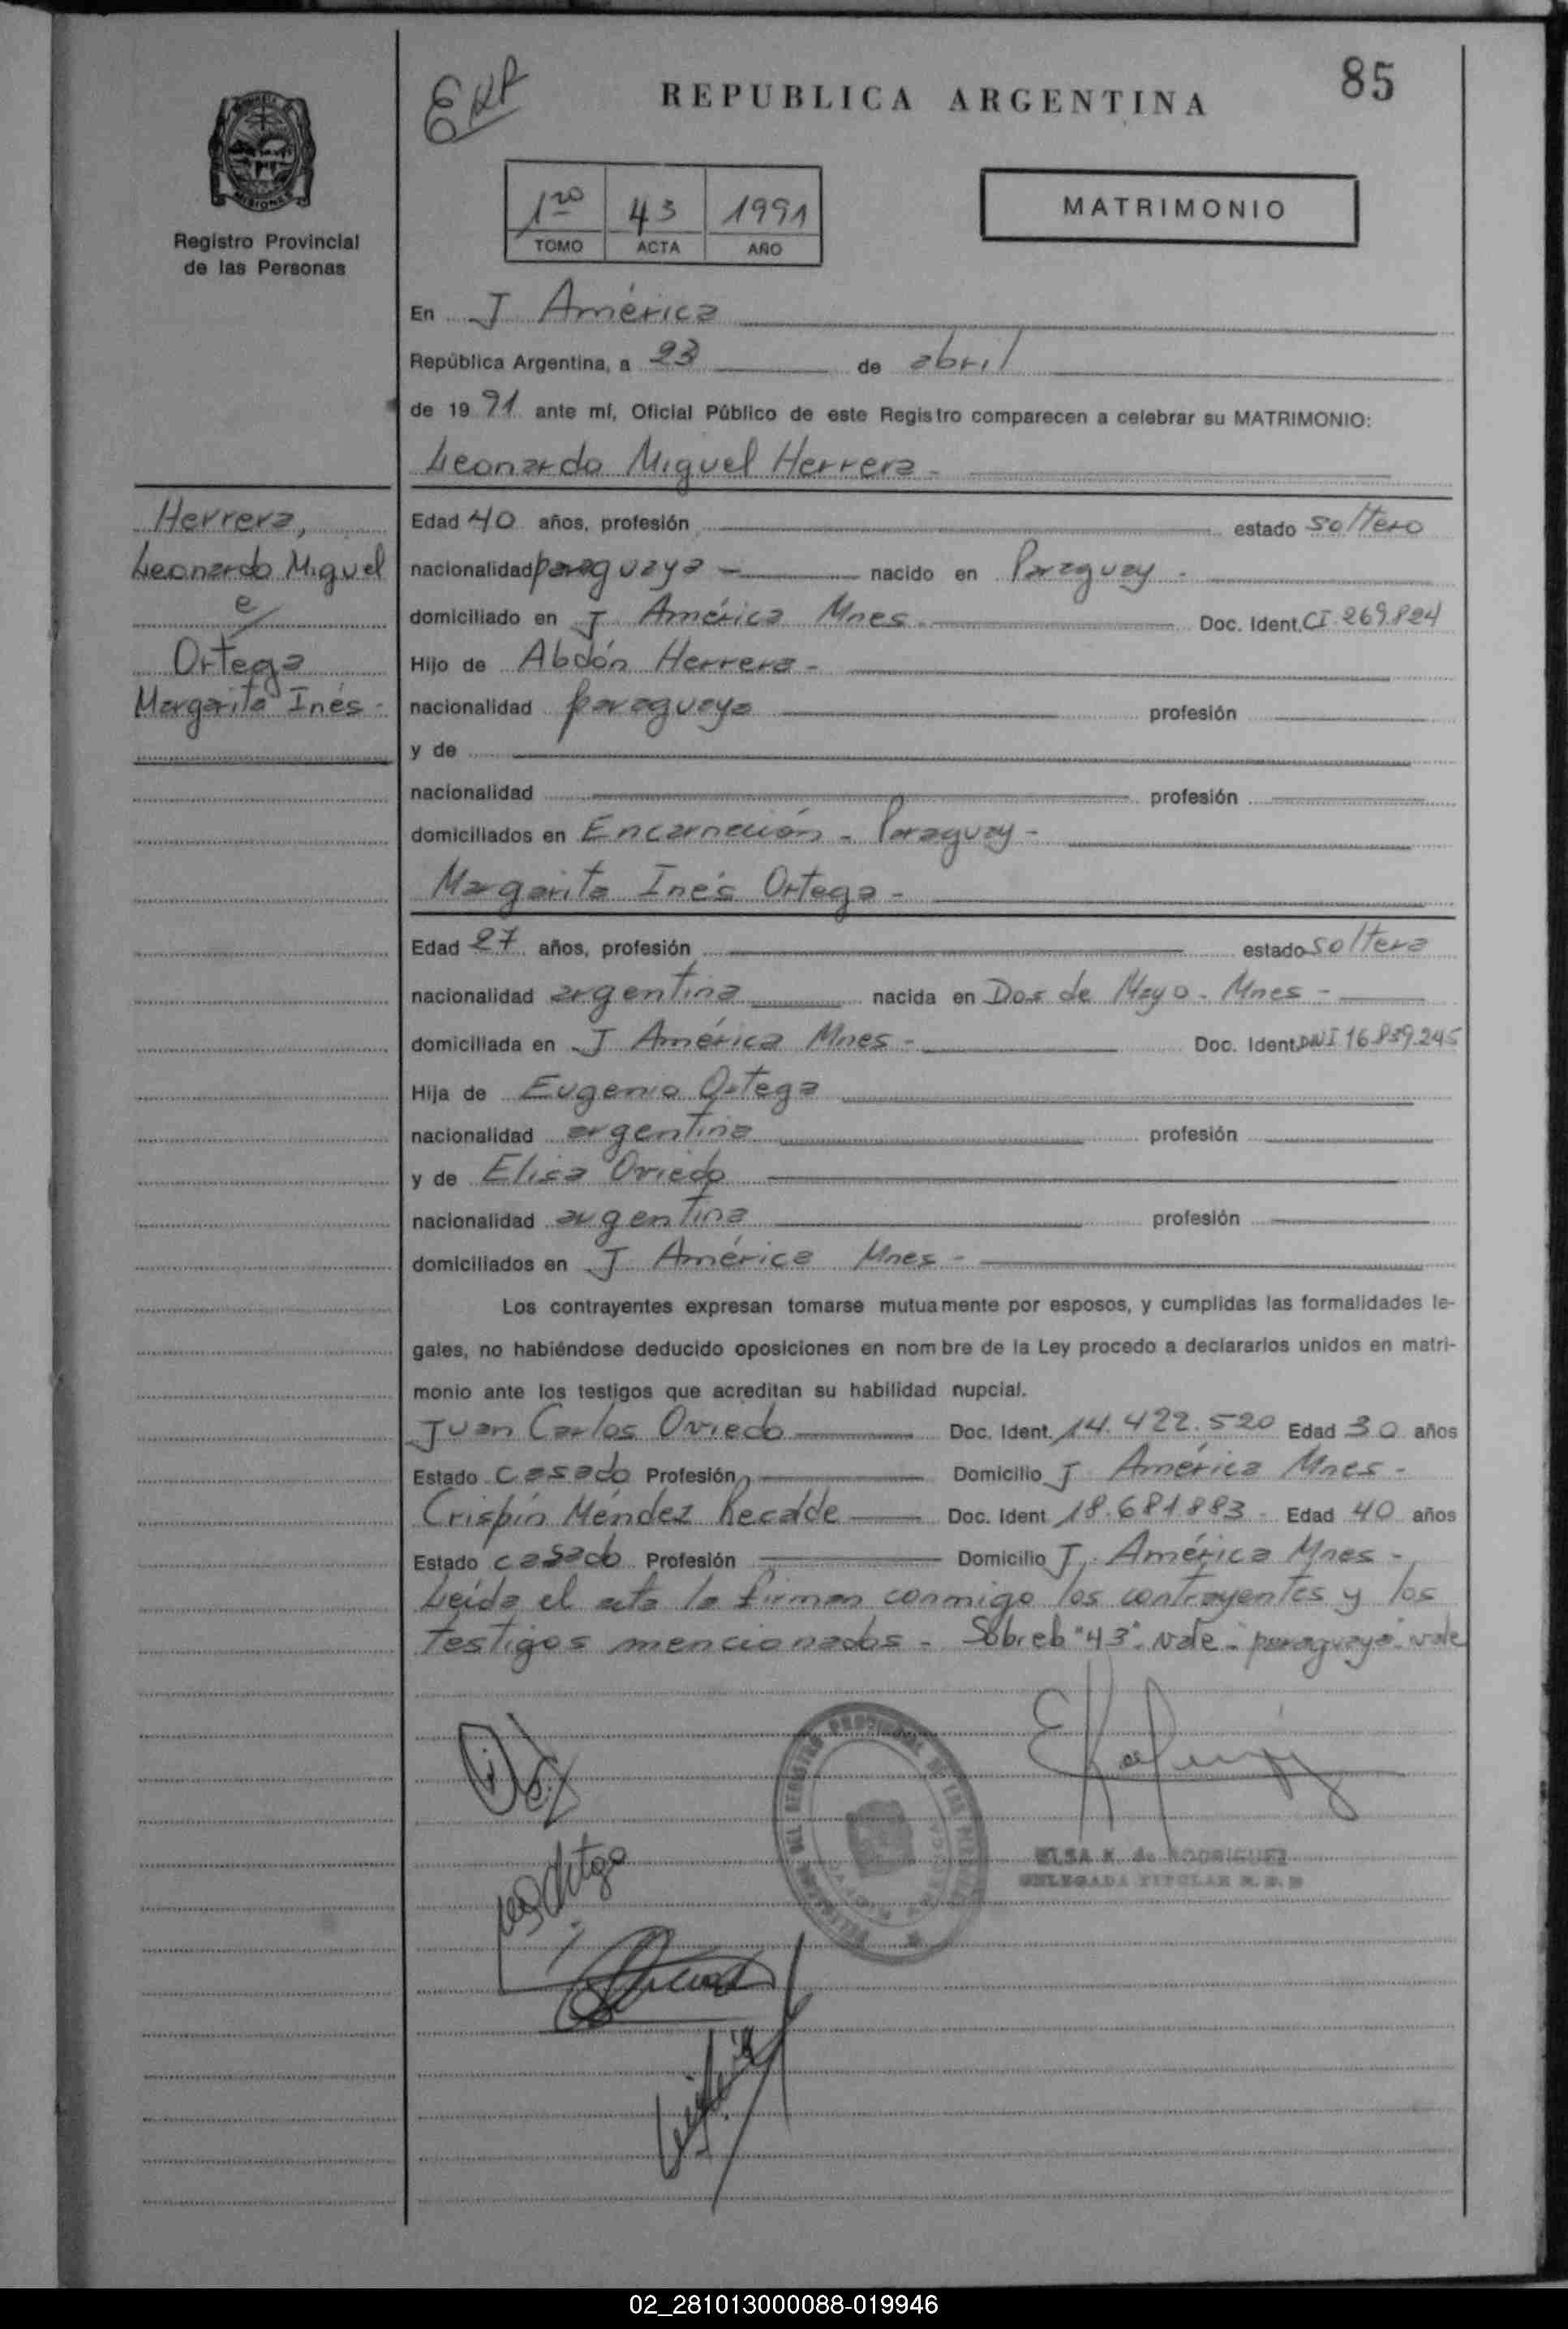 85
REPUBLICA ARGENTINA
MATRIMONIO
1ro 43 1991
TOMO ACTA AÑO
MISIONES
Registro Provincial
de las Personas
En J América
República Argentina, a 23 de abril
de 19 91 ante mí, Oficial Público de este Registro comparecen a celebrar su MATRIMONIO:
Leonardo Miguel Herrera -
Herrera,
Leonardo Miguel
e/
Ortega
Margarita Inés -
Edad 40 años, profesión estado soltero
nacionalidad paraguaya - nacido en Paraguay -
domiciliado en J América Mnes - Doc. Ident. CI. 269.824
Hijo de Abdón Herrera -
nacionalidad paraguaya profesión
y de
nacionalidad profesión
domiciliados en Encarnación - Paraguay -
Margarita Inés Ortega -
Edad 27 años, profesión estado soltera
nacionalidad argentina nacida en Dos de Mayo - Mnes -
domiciliada en J América Mnes - Doc. Ident. DNI 16.839.245
Hija de Eugenio Ortega
nacionalidad argentina profesión
y de Elisa Oviedo
nacionalidad argentina profesión
domiciliados en J América Mnes -
Los contrayentes expresan tomarse mutuamente por esposos, y cumplidas las formalidades le-
gales, no habiéndose deducido oposiciones en nombre de la Ley procedo a declararlos unidos en matri-
monio ante los testigos que acreditan su habilidad nupcial.
Juan Carlos Oviedo Doc. Ident. 14.422.520 Edad 30 años
Estado casado Profesión Domicilio J América Mnes -
Crispín Méndez Recalde Doc. Ident 18.681.883 - Edad 40 años
Estado casado Profesión Domicilio J. América Mnes -
Leída el acta la firman conmigo los contrayentes y los
testigos mencionados - Sobreb "43" vale - "paraguaya" vale
ELSA K. de RODRIGUEZ
DELEGADA TITULAR
02_281013000088-019946